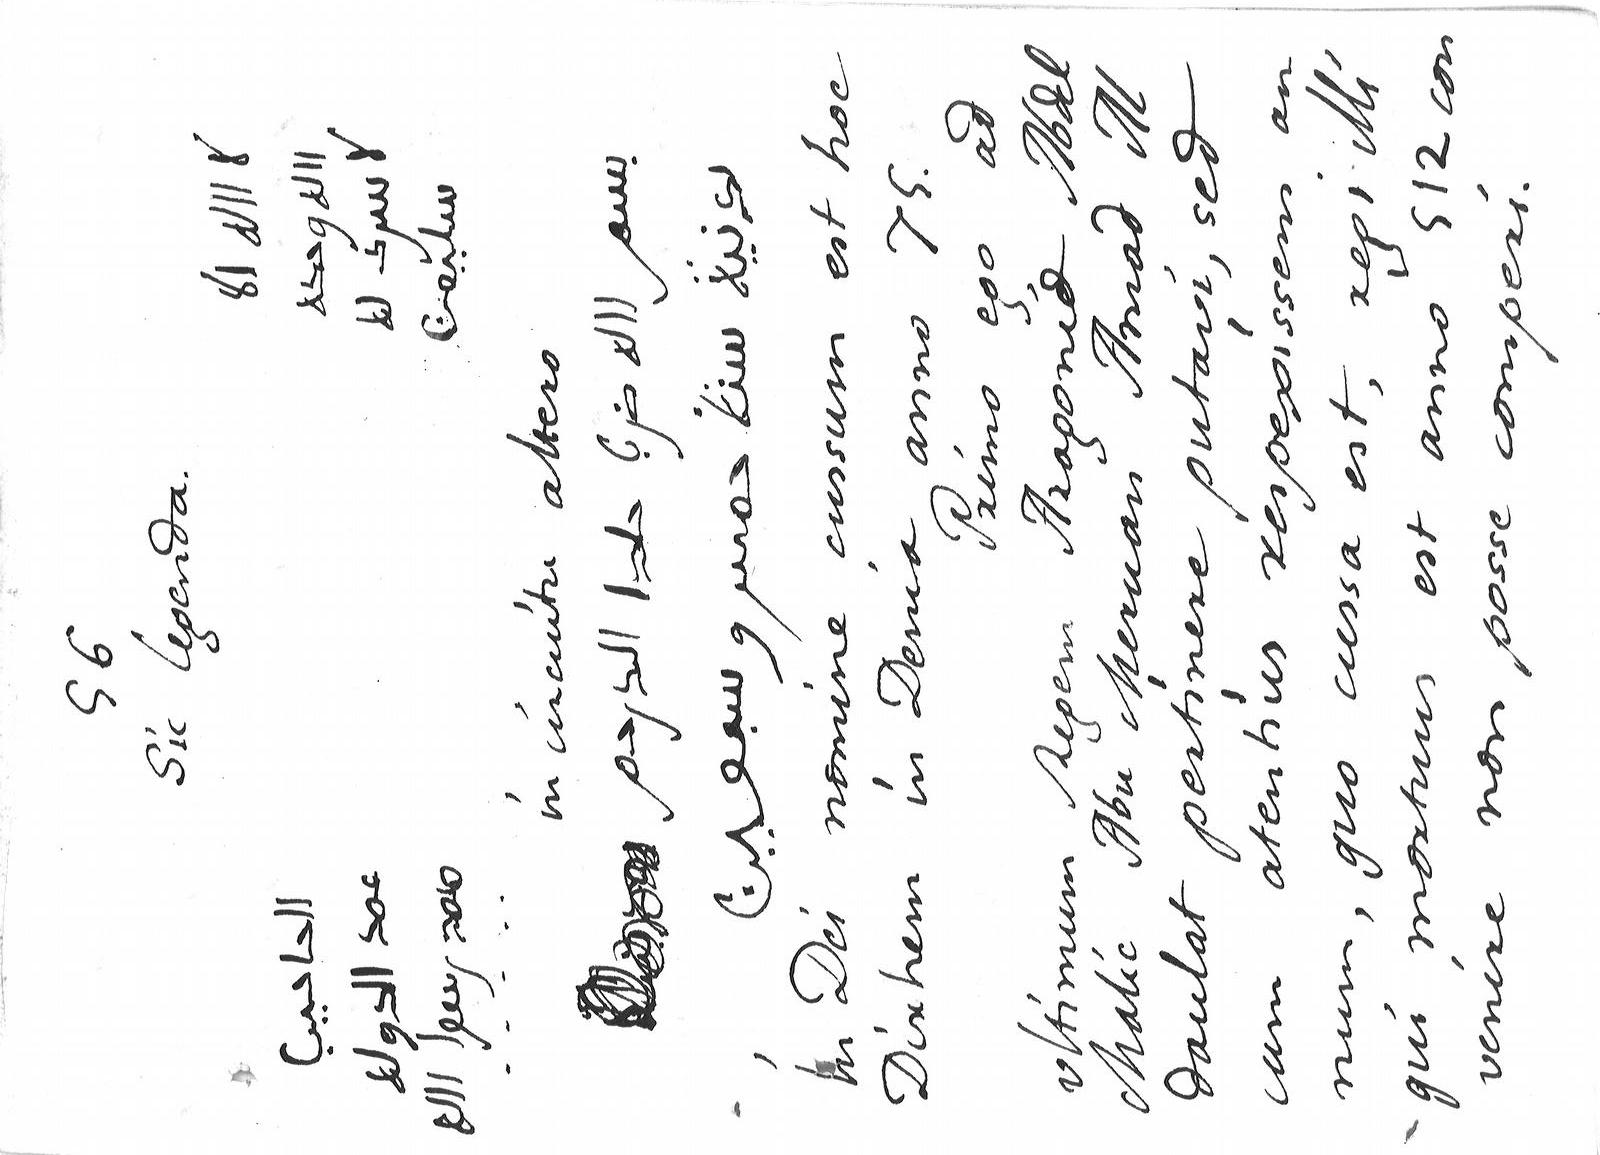 § 6
Sic legenda.
لا اله الا
الحاجب
الله وحده
عمد الدوله
لا سريك له
محمد رسول الله
سليمن
in circuitu altero
بسم الله ضرب هذا الدرهم
بدنية سنة خمس و سبعين
In Dei nomine cussum est hoc
Dirhem in Denia anno 75.
Primo ego ad
vltimum Regem Aragoniæ, Abdel
Malic Abu Meruan Amad Al
daulat pertinere putavi, sed
cum atentius perspexissem an
num, quo cussa est, regi illi
qui mortuus est anno 512 con
venire non posse comperi.